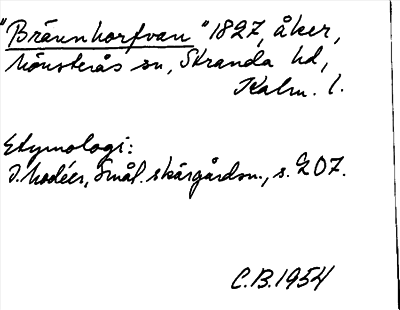 "Bräunhorfvan" 1827, åker,
Mönsterås sn, Stranda hd,
Kalm. l.
Etymologi:
I. Modéer, Smål. skärgårdsn., s. 207.
C.B. 1954